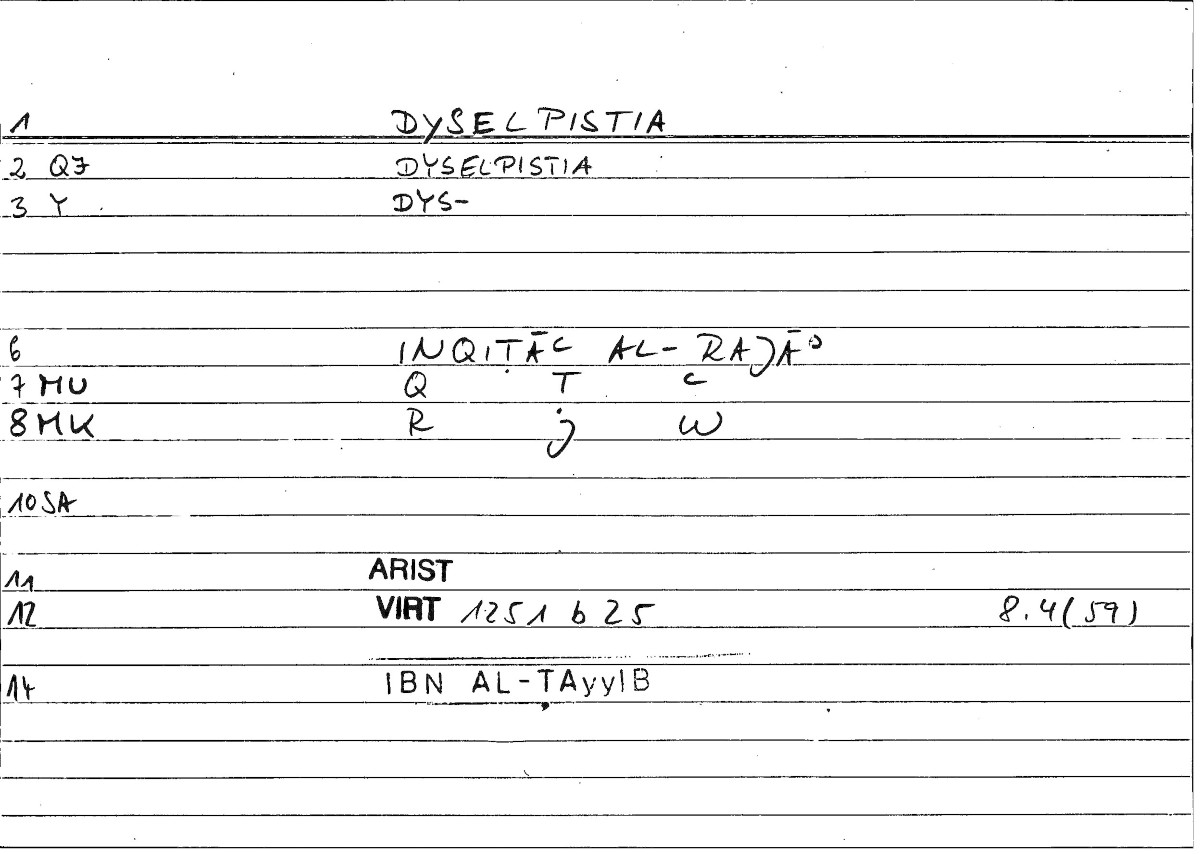 1 DYSELPISTIA
2 Q7 DYSELPISTIA
3 Y DYS-
6 INQIṬĀʿ AL-RAJĀʾ
7 MU Q Ṭ ʿ
8 MK R j W
10 SA
11 ARIST
12 VIRT 1251 b 25 8.4(59)
14 IBN AL-ṬAyyIB